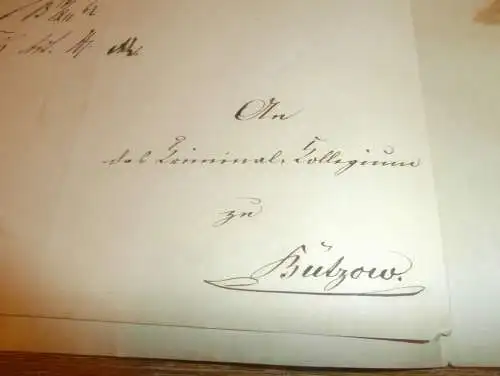 An
das Kriminal-Kollegium
zu
Bützow.